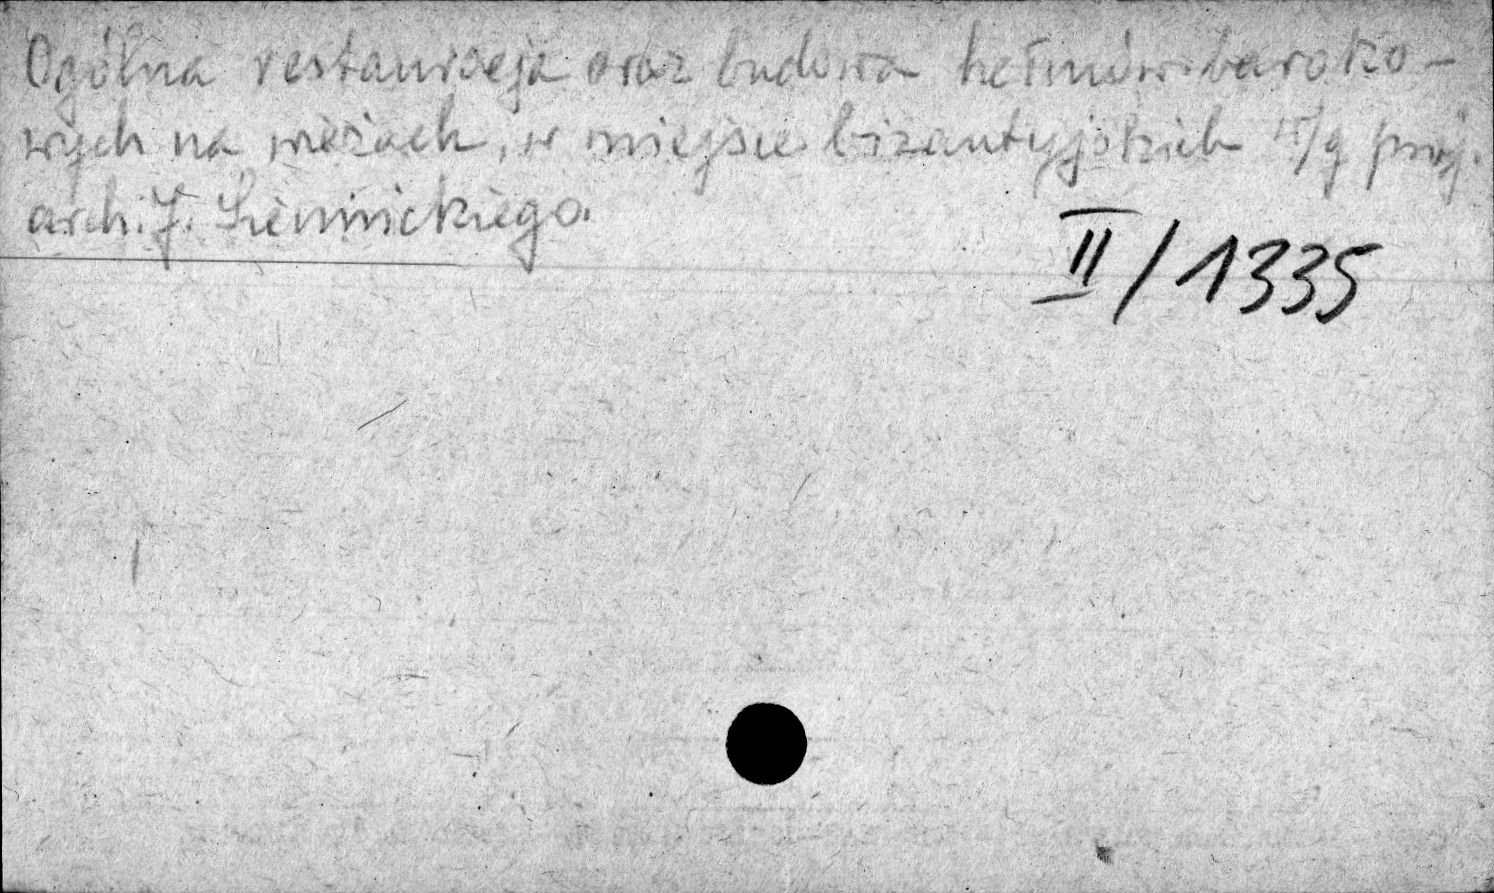 Ogólna restauracja oraz budowa hełmów baroko-
wych na wieżach, w miejsce bizantyjskich w/g proj.
arch. J. Siennickiego.
II/1335